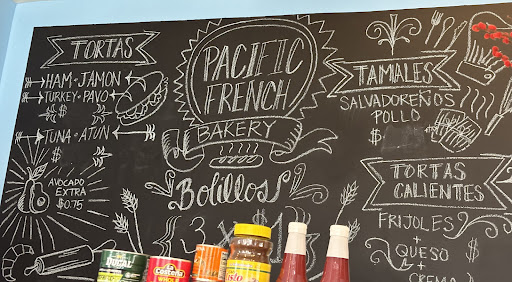 TORTAS
HAM • JAMON
TURKEY • PAVO
$
TUNA • ATUN
$
AVOCADO
EXTRA
$0.75
PACIFIC
FRENCH
BAKERY
Bolillos
3
TAMALES
SALVADOREÑOS
POLLO
$
TORTAS
CALIENTES
FRIJOLES
+
QUESO
+
CREMA
$
La
Costeña
WHOLE